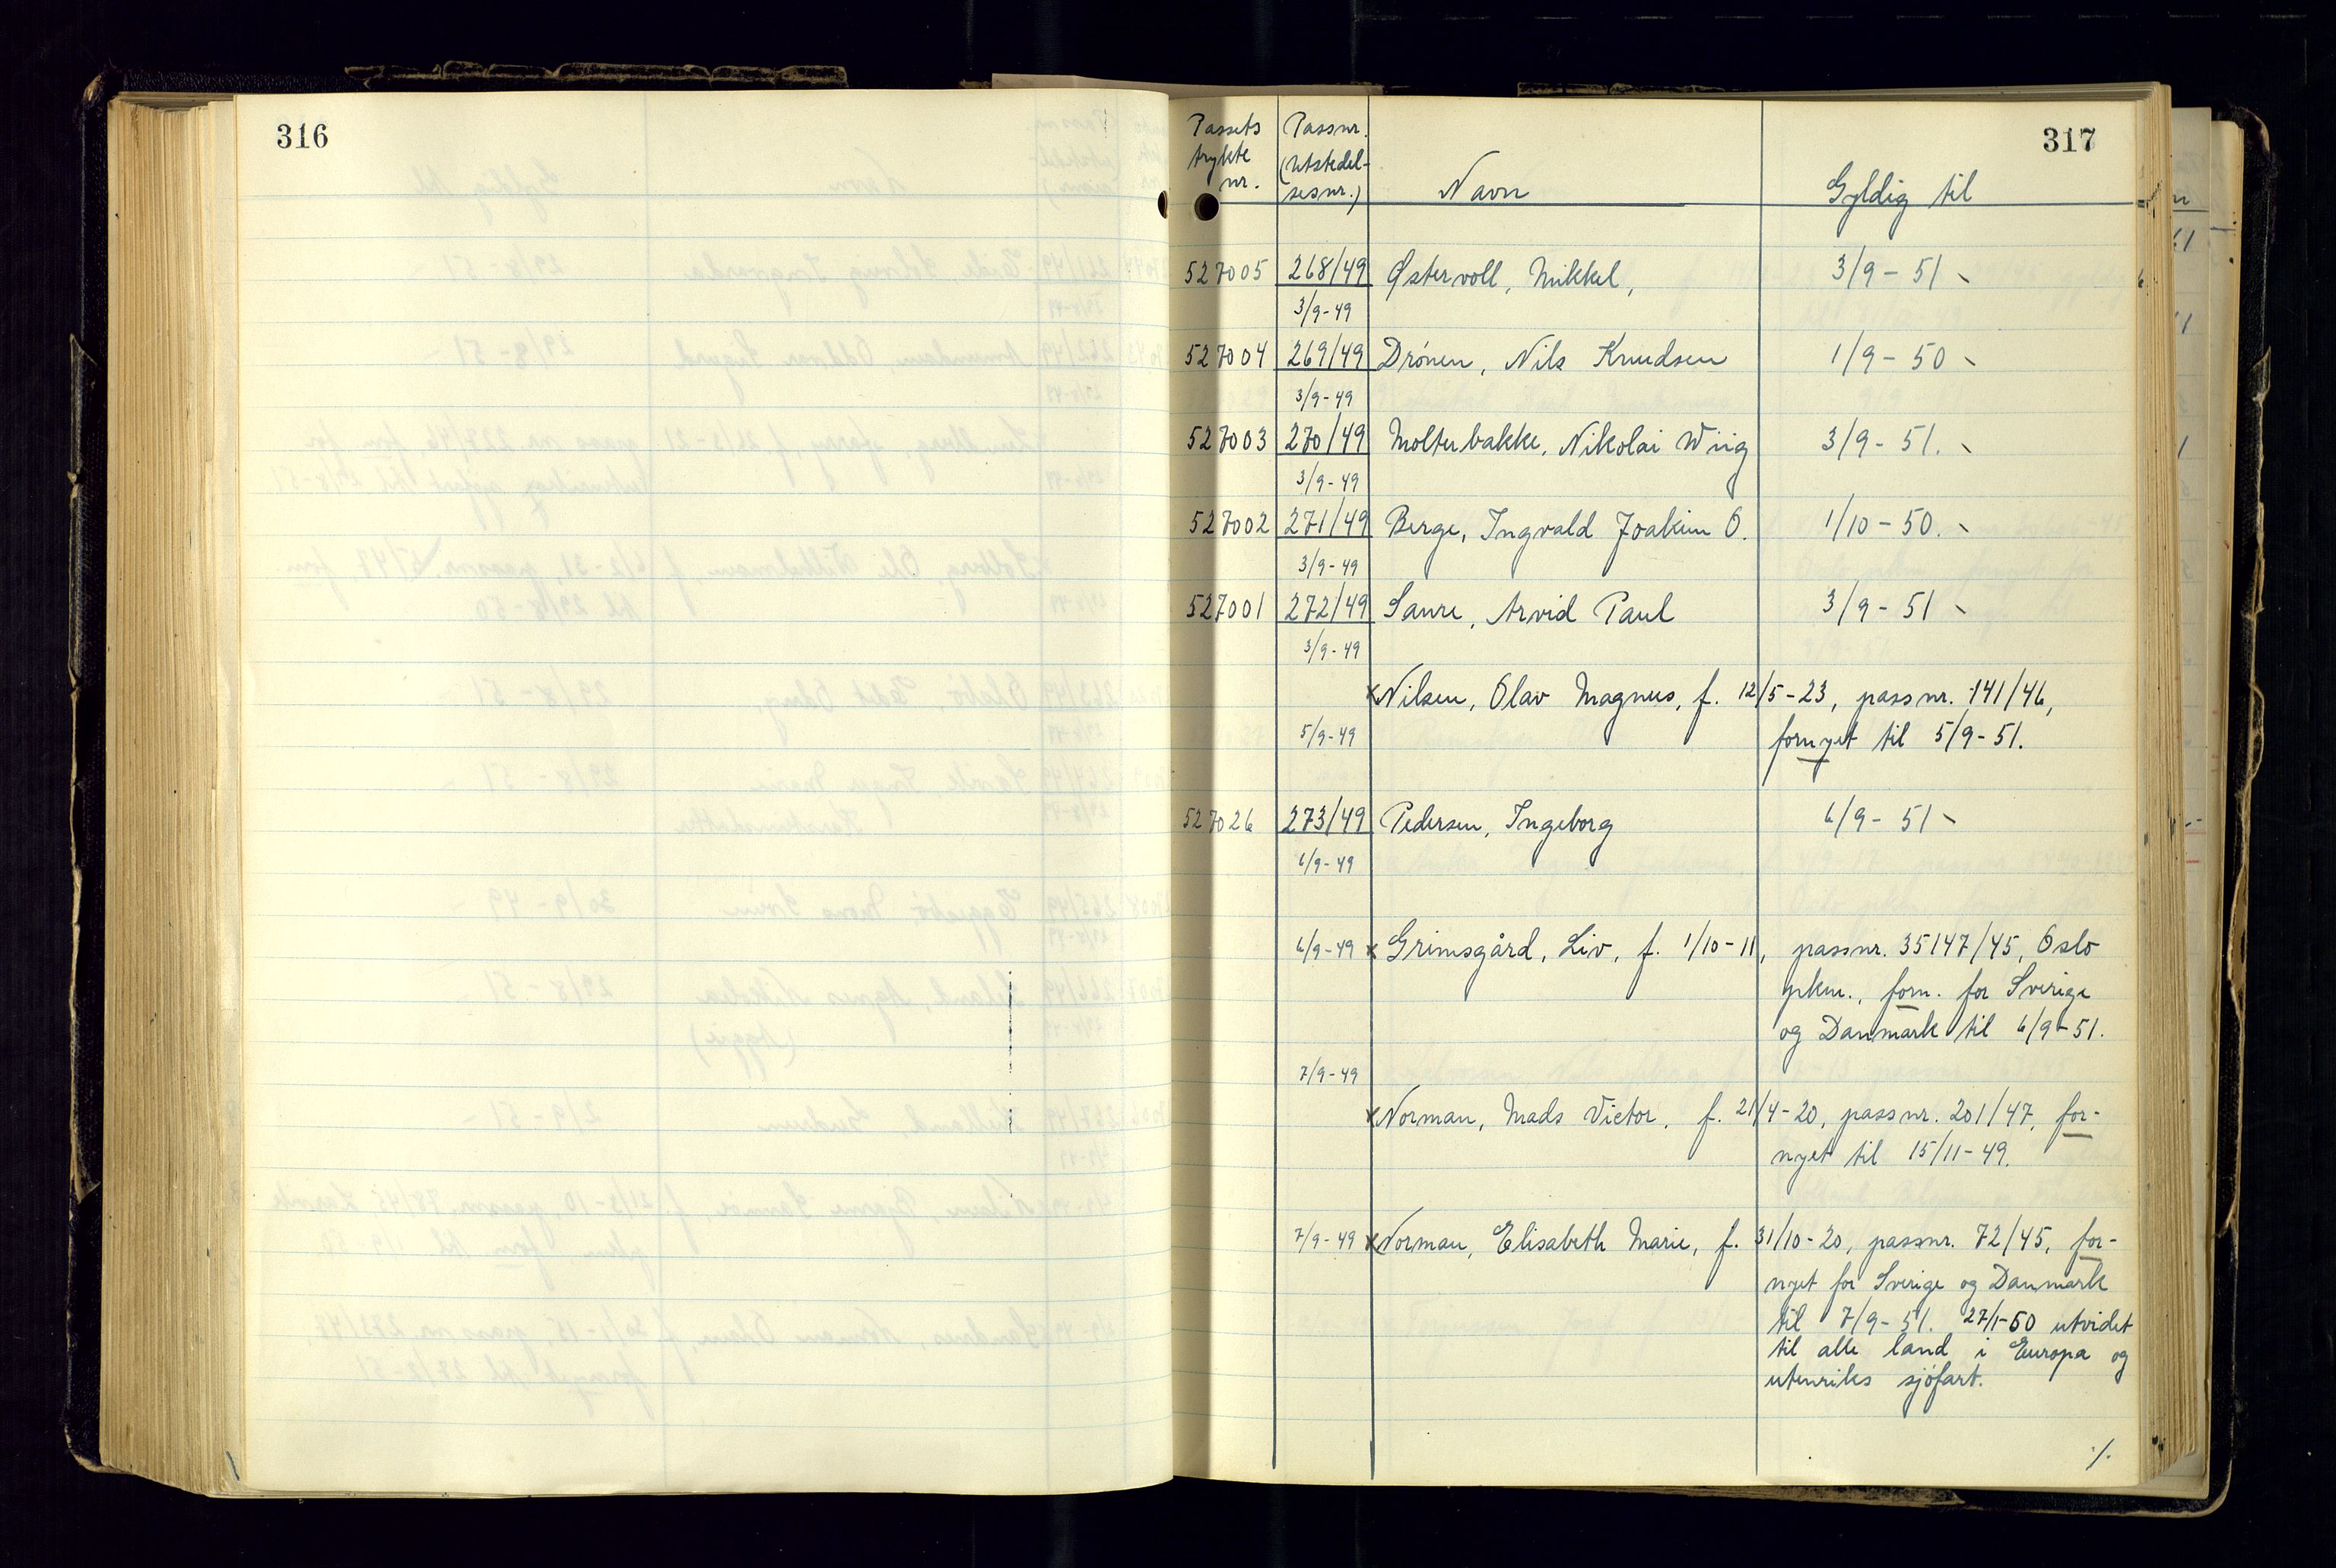 316
317
Passets trykte nr.
Passnr. (Utstedelsesnr.)
Navn
Gyldig til
527005 268/49 Østervoll, Mikkel, 3/9-51
3/9-49
527004 269/49 Drönen, Nils Knudsen 1/9-50
3/9-49
527003 270/49 Molterbakke, Nikolai Wiig 3/9-51.
3/9-49
527002 271/49 Berge, Ingvald Joakim O. 1/10-50.
3/9-49
527001 272/49 Saure, Arvid Paul 3/9-51
3/9-49
x Nilsen, Olav Magnus, f. 12/5-23, passnr. 141/46,
5/9-49 fornyet til 5/9-51.
527026 273/49 Pedersen, Ingeborg 6/9-51
6/9-49
6/9-49 x Grimsgård, Liv, f. 1/10-11, passnr. 35147/45, Oslo
pkm., forn. for Sverige
og Danmark til 6/9-51.
7/9-49
x Norman, Mads Victor, f. 21/4-20, passnr. 201/47, for-
nyet til 15/11-49.
7/9-49 x Norman, Elisabeth Marie, f. 31/10-20, passnr. 72/45, for-
nyet for Sverige og Danmark
til 7/9-51. 27/1-50 utvidet
til alle land i Europa og
utenriks sjöfart.
./.